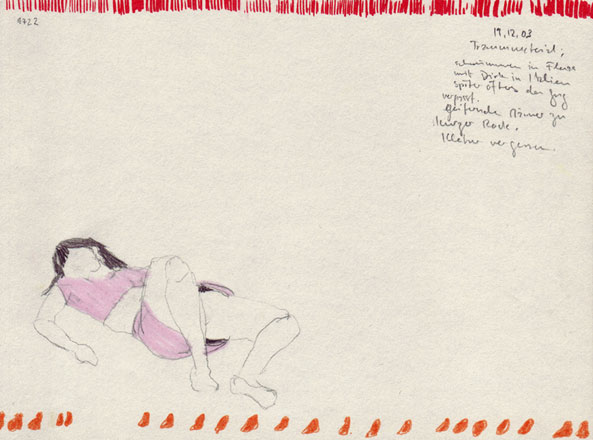 1722
19.12.03
Traummaterial;
schwimmen in Fluss
mit Dirk in Italien
später öfters den Zug
verpasst.
geifernde Männer zu
kurzer Rock.
Kleber vergessen.